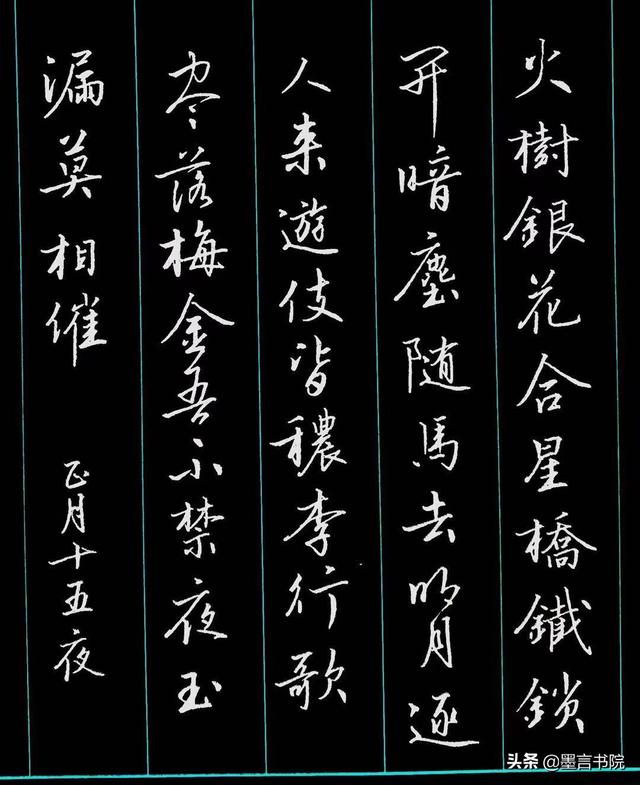 火樹銀花合星橋鐵鎖
開暗塵随馬去明月逐
人来遊伎皆穠李行歌
盡落梅金吾不禁夜玉
漏莫相催
正月十五夜
头条@墨言书院